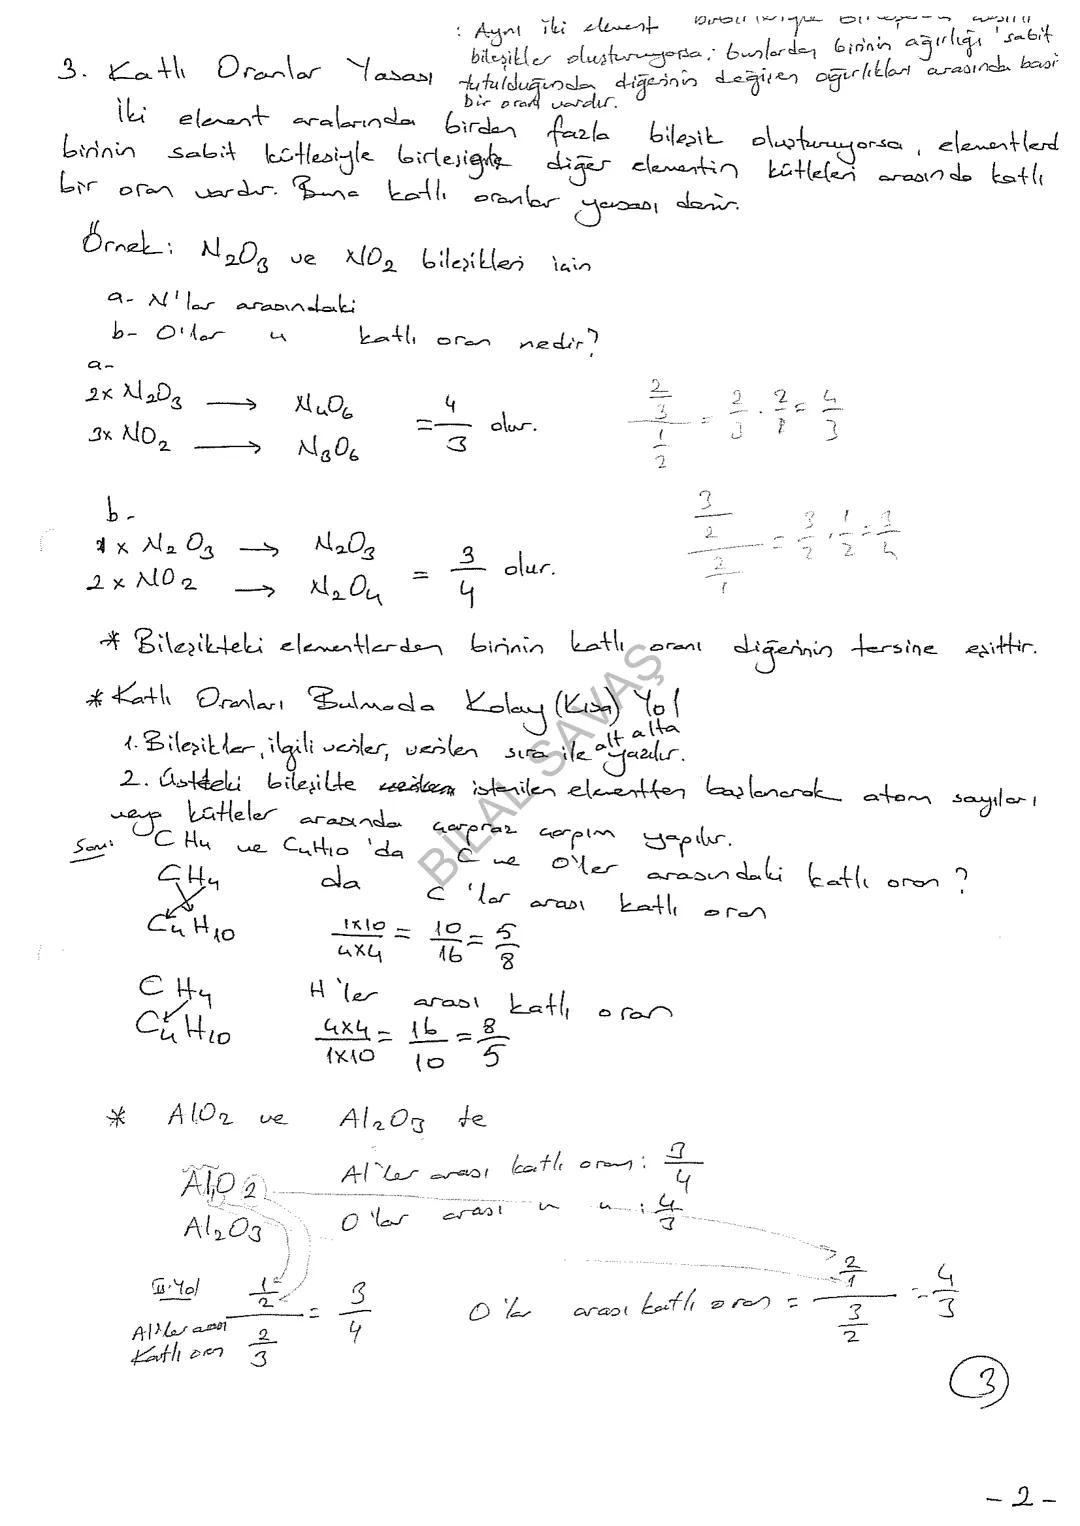 : Aynı iki element
bileşikler oluşturuyorsa; bunlardan birinin ağırlığı 'sabit
3. Katlı Oranlar Yasası tutulduğunda diğerinin değişen ağırlıkları arasında basi
bir oran vardır.
İki element aralarında birden fazla bileşik oluşturuyorsa, elementlerd
birinin sabit kütlesiyle birleşen diğer elementin kütleleri arasında katlı
bir oran vardır. Buna katlı oranlar yasası denir.
Örnek: N2O3 ve NO2 bileşikleri için
a- N'lar arasındaki
b- O'lar " katlı oran nedir?
a-
2x N2O3 → N4O6
3x NO2 → N3O6
= 4/3 olur.
(2/3)/(1/2) = 2/3 . 2/1 = 4/3
b-
1 x N2O3 → N2O3
2 x NO2 → N2O4
= 3/4 olur.
(3/2)/(2/1) = 3/2 . 1/2 = 3/4
* Bileşikteki elementlerden birinin katlı oranı diğerinin tersine eşittir.
* Katlı Oranları Bulmada Kolay (Kısa) Yol
1. Bileşikler, ilgili veriler, verilen sıra ile alt alta yazılır.
2. Üstteki bileşikte istenilen elementten başlanarak atom sayıları
veya kütleler arasında çarpraz çarpım yapılır.
Soru: CH4 ve C4H10 'da C ve O'ler arasındaki katlı oran?
CH4 da C 'lar arası katlı oran
C4H10 1x10/4x4 = 10/16 = 5/8
CH4 H'ler arası katlı oran
C4H10 4x4/1x10 = 16/10 = 8/5
* AlO2 ve Al2O3 te
AlO2 Al'ler arası katlı oranı: 3/4
Al2O3 O'lar arası " " : 4/3
II. Yol
Al'ler arası
Katlı oran
(1/2)/(2/3) = 3/4
O'lar arası katlı oran = (2/1)/(3/2) = 4/3
3
- 2 -
BİLAL SAVAŞ